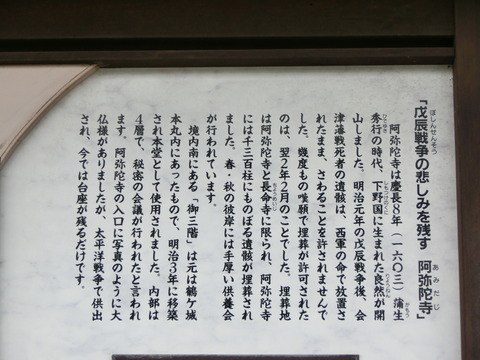 「戊辰戦争の悲しみを残す　阿弥陀寺」
阿弥陀寺は慶長8年（一六〇三）蒲生
秀行の時代、下野国に生まれた良然が開
山しました。明治元年の戊辰戦争後、会
津藩戦死者の遺骸は、西軍の命で放置さ
れたまま、さわることを許されませんで
した。幾度もの嘆願で埋葬が許可された
のは、翌2年2月のことでした。埋葬地
は阿弥陀寺と長命寺に限られ、阿弥陀寺
には千三百柱にものぼる遺骸が埋葬され
ました。春・秋の彼岸には手厚い供養会
が行われています。
境内南にある「御三階」は元は鶴ケ城
本丸内にあったもので、明治3年に移築
され本堂として使用されました。内部は
4層で、秘密の会議が行われたと言われ
ます。阿弥陀寺の入口に写真のように大
仏様がありましたが、太平洋戦争で供出
され、今では台座が残るだけです。